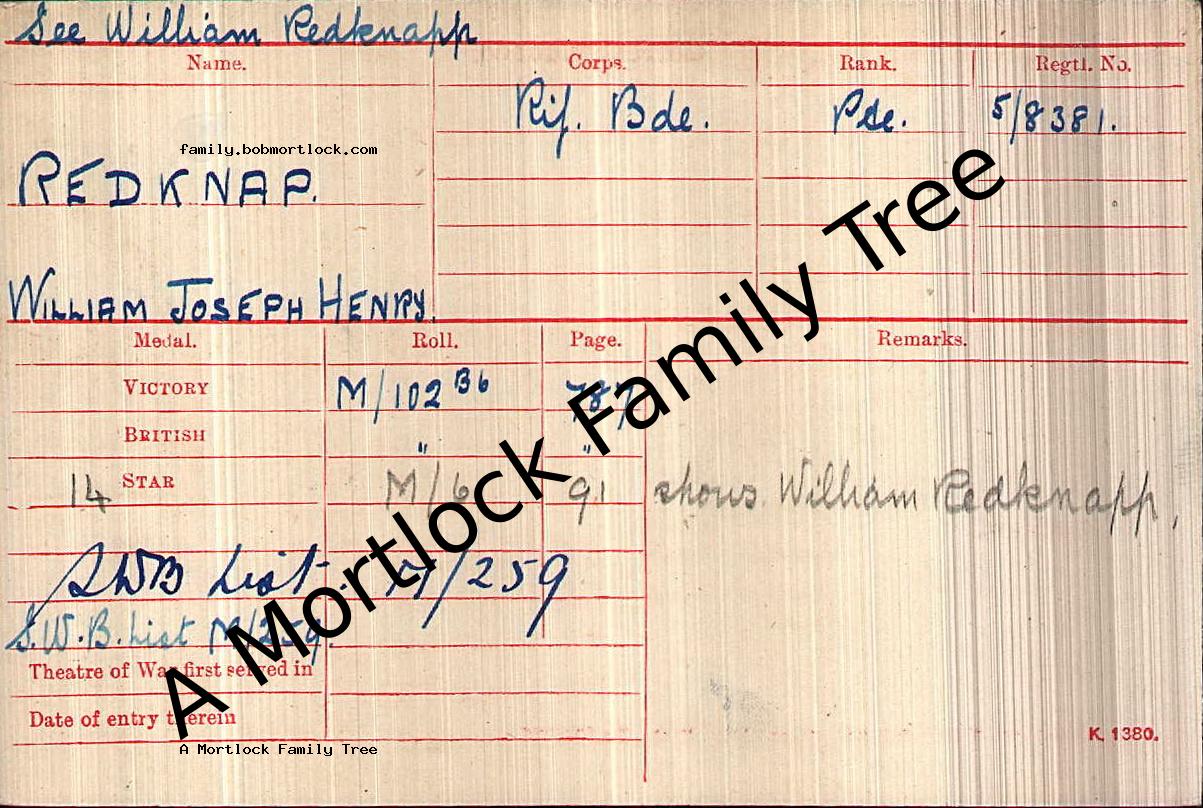 See William Redknapp
Name. Corps. Rank. Regtl. No.
Rif. Bde. Pte. 5/8381.
family.bobmortlock.com
REDKNAP.
WILLIAM JOSEPH HENRY.
Medal. Roll. Page. Remarks.
VICTORY M/102 B6 787
BRITISH " "
14 STAR M/6 91 shows William Redknapp,
SWB List. M/259
S.W.B. List M/259.
Theatre of War first served in
Date of entry therein
K. 1380.
A Mortlock Family Tree
A Mortlock Family Tree